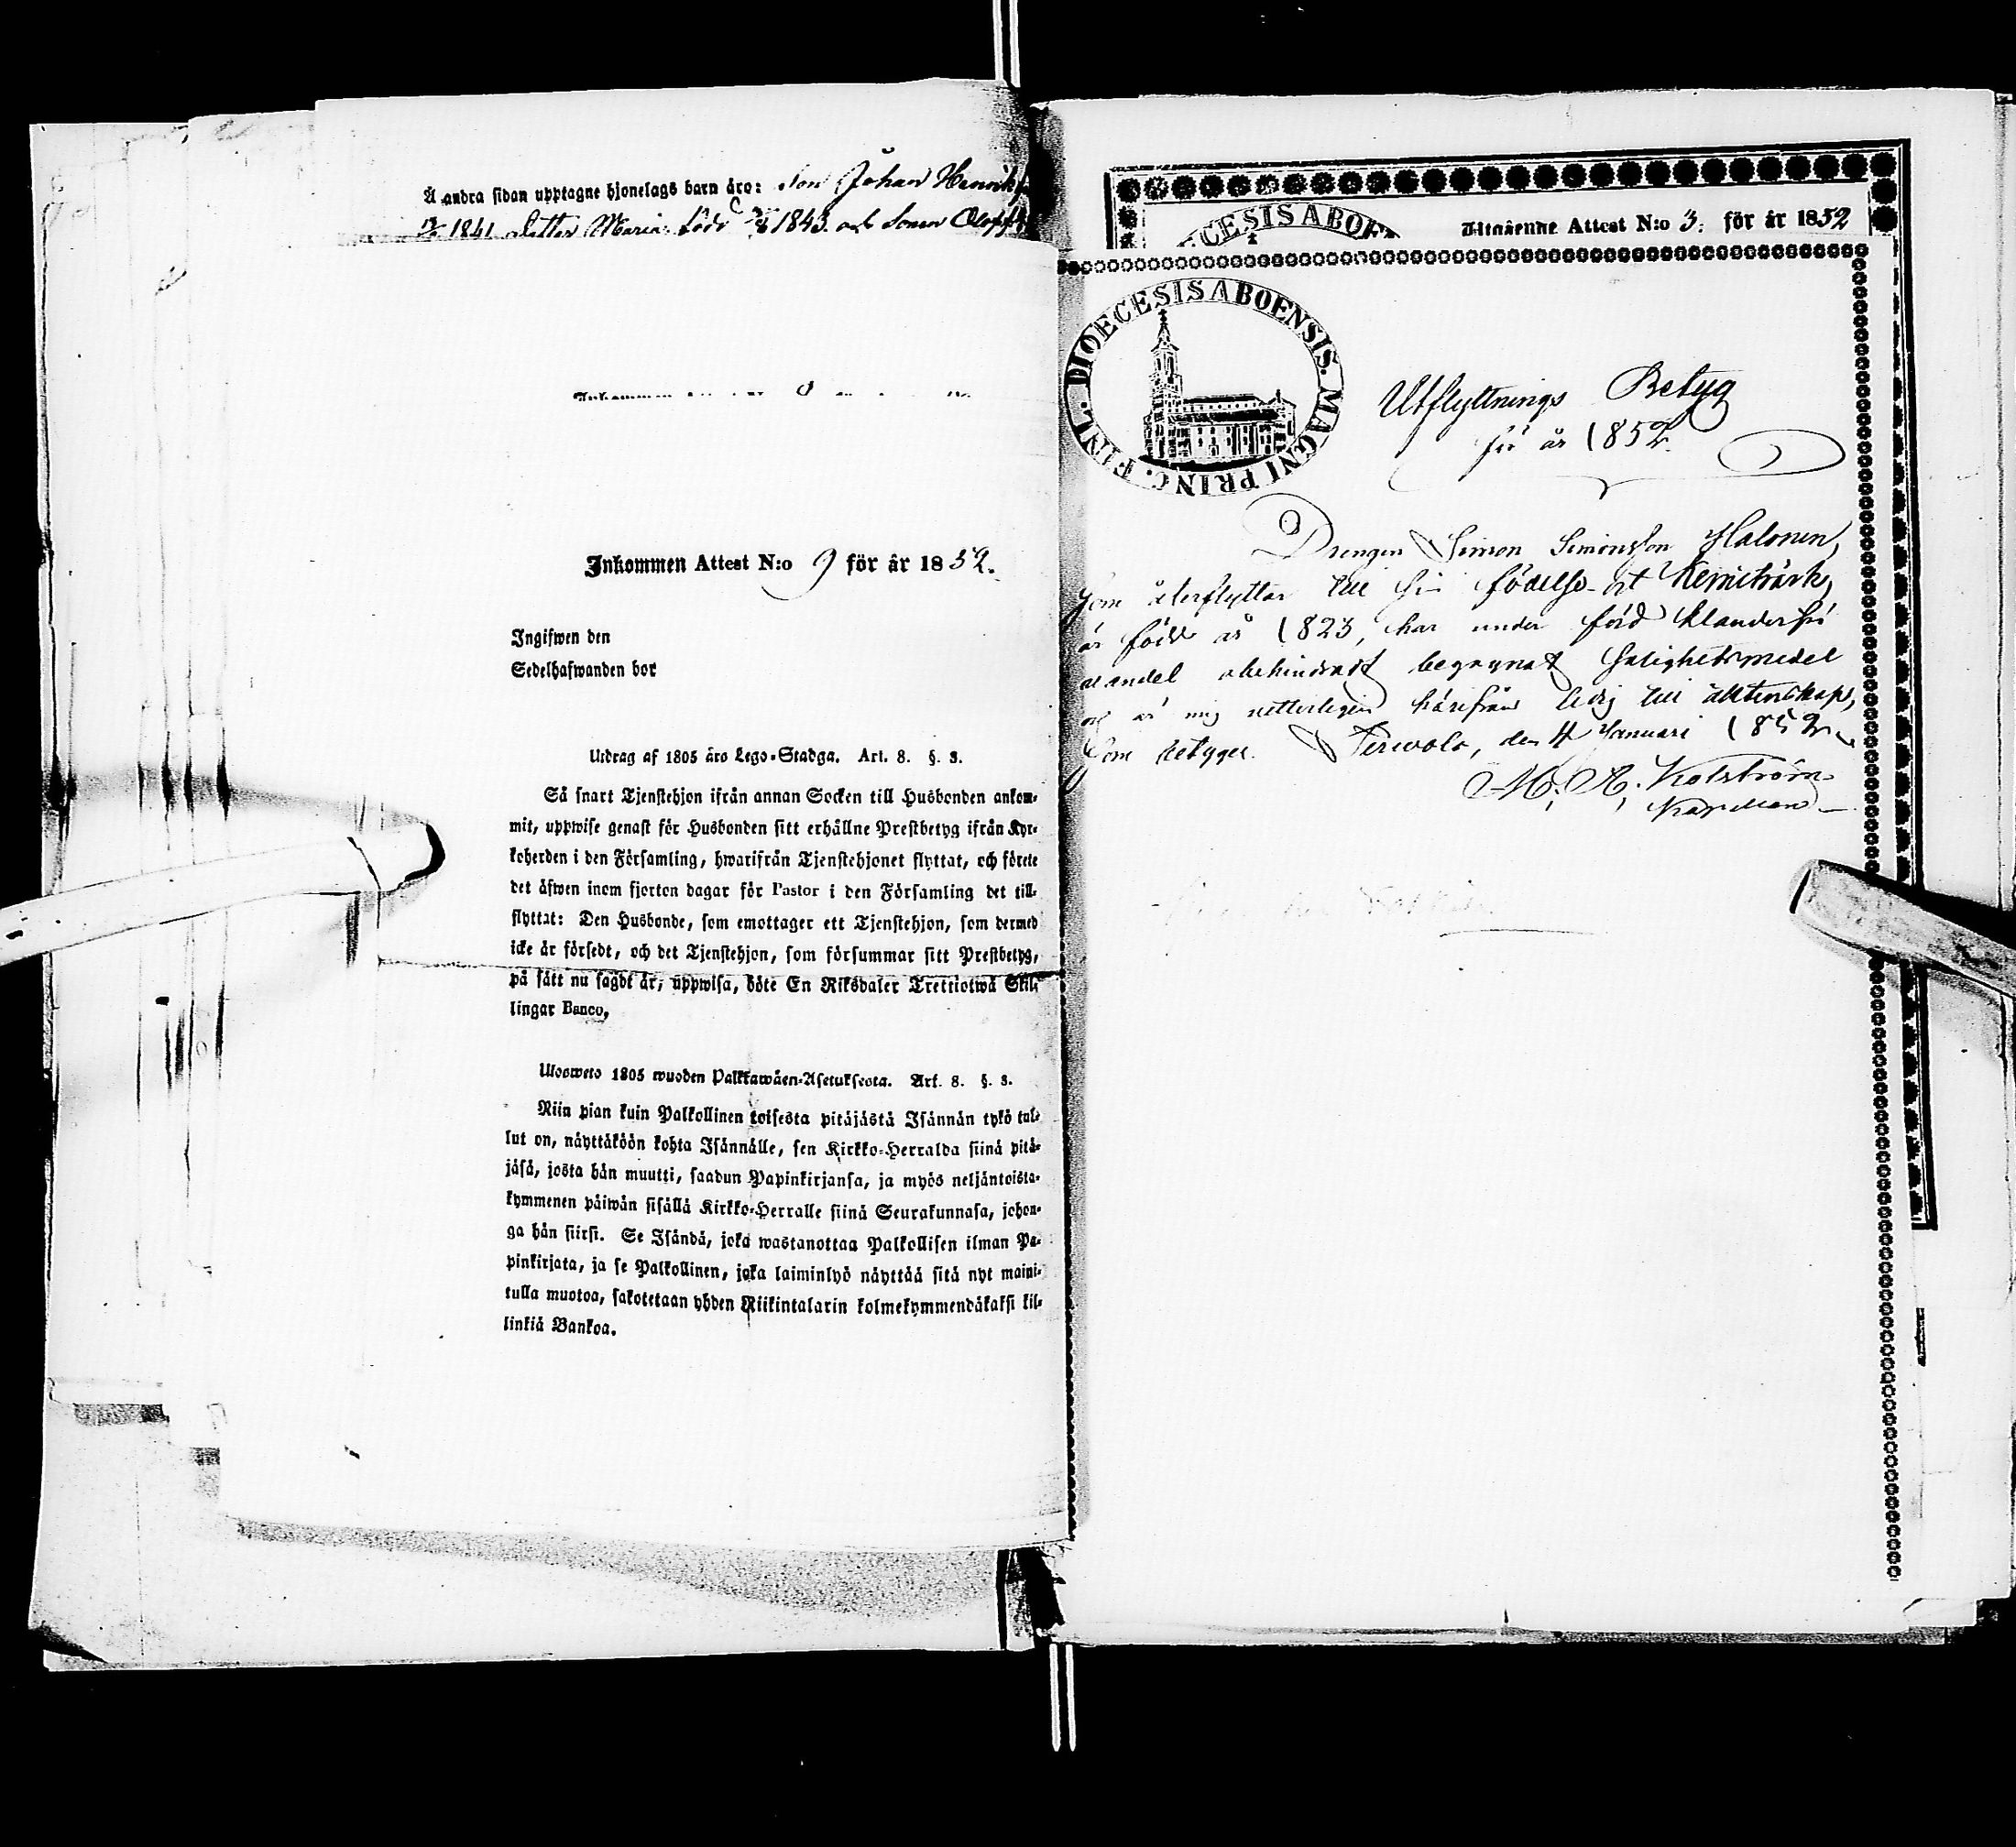 Å andra sidan upptagne hjonelags barn äro: Son Johan Henrik
1841. Dotter Maria född 1843. och Sonen Oloff
Inkommen Attest N:o 9 för år 1852.
Ingifwen den
Sedelhafwanden bor
Utdrag af 1805 års Lego-Stadga. Art. 8. §. 3.
Så snart Tjenstehjon ifrån annan Socken till Husbonden ankom-
mit, uppwise genast för Husbonden sitt erhållne Prestbetyg ifrån Kyr-
koherden i den Församling, hwarifrån Tjenstehjonet flyttat, och förete
det äfwen inom fjorton dagar för Pastor i den Församling det till-
flyttat: Den Husbonde, som emottager ett Tjenstehjon, som dermed
icke är försedt, och det Tjenstehjon, som försummar sitt Prestbetyg,
på sätt nu sagdt är, uppwisa, böte En Riksdaler Trettiotwå Skil-
lingar Banco.
Ulosweto 1805 wuoden Palkkawäen-Asetuksesta. Art. 8. §. 3.
Niin pian kuin Palkollinen toisesta pitäjästä Isännän tykö tul-
lut on, näyttäköön kohta Isännälle, sen Kirkko-Herralda siinä pitä-
jäsä, josta hän muutti, saadun Papinkirjansa, ja myös neljäntoista-
kymmenen päiwän sisällä Kirkko-Herralle siinä Seurakunnasa, johon-
ga hän siirsi. Se Isändä, joka wastanottaa Palkollisen ilman Pa-
pinkirjata, ja se Palkollinen, joka laiminlyö näyttää sitä nyt maini-
tulla muotoa, sakotetaan yhden Riikintalarin kolmekymmendäkaksi kil-
linkiä Bankoa.
CESIS ABO
Utgående Attest N:o 3. för år 1852
DIOECESIS ABOENSIS. MAGNI PRINC. FINL.
Utflyttnings Betyg
för år 1852.
Drengen Simon Simonsson Halonen,
som återflyttar till sin födelse-ort Kemiträsk,
är född år 1823, har under förd klanderfri
wandel obehindradt begagnat salighetsmedel
och är mig vetterligen härifrån ledig till äktenskap,
Som betygar. Terwola, den 4 Januari 1852.
M. A. Kolström
Kapellan